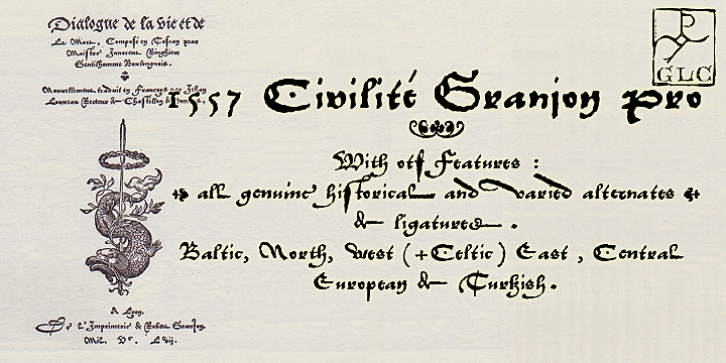 Dialogue de la vie et de
La Mort, Composé en Toscan par
Maistre Innocent Ringhiere
Gentilhomme Boulongnois.
Nouvellement traduit en Françoys par Jehan
Louveau Recteur de Chastillon de Dombes.
GLC
1557 Civilité Granjon Pro
With otf Features :
all genuine historical and varied alternates
& ligatures .
Baltic, North, west (+Celtic) East , Central
European & Turkish.
A Lyon,
De l'Imprimerie de Robert Granjon.
Mil. Vc. Lvij.